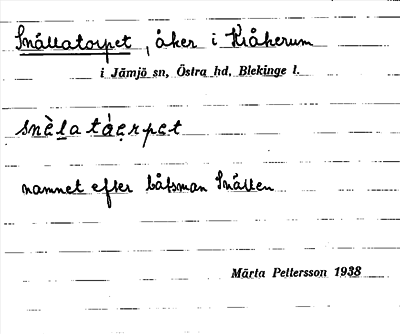 Snållatorpet, åker i Kråkerum
i Jämjö sn, Östra hd, Blekinge l.
snèla táerpet
namnet efter båtsman Snållen
Märta Pettersson 1938